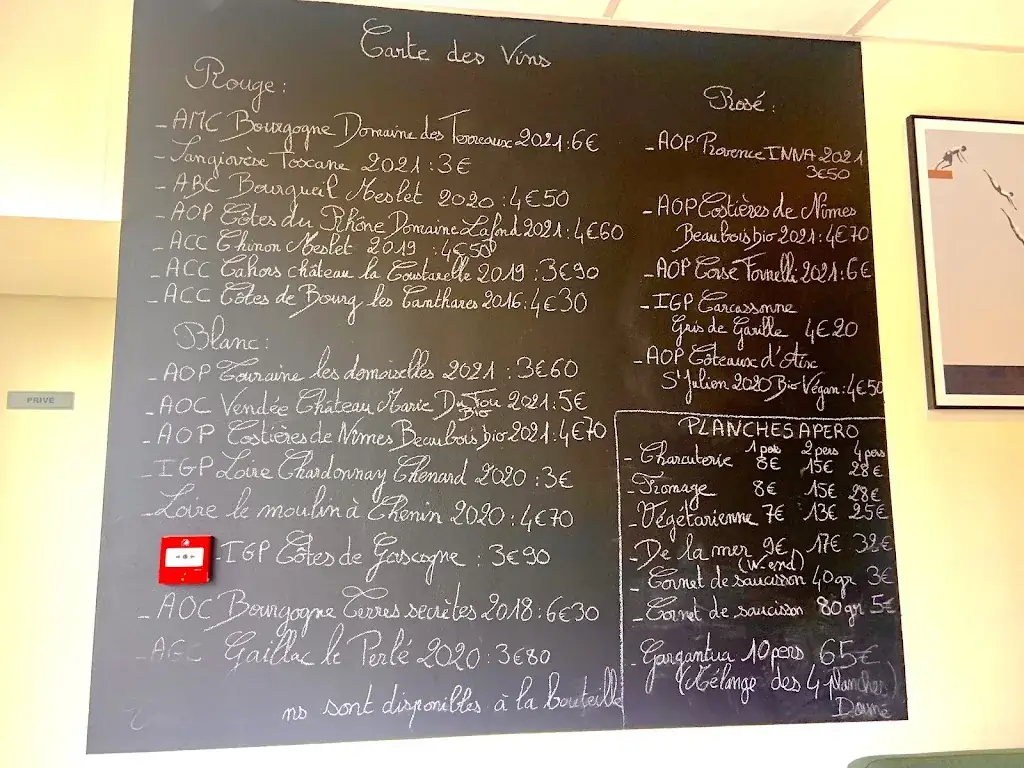 Carte des Vins
Rouge :
- AMC Bourgogne Domaine des Terreaux 2021 : 6€
- Sangiovèse Toscane 2021 : 3€
- ABC Bourgueil Meslet 2020 : 4€50
- AOP Côtes du Rhône Domaine Lafond 2021 : 4€60
- ACC Chinon Meslet 2019 : 4€50
- ACC Cahors château la Coustarelle 2019 : 3€90
- ACC Côtes de Bourg les Cantharès 2016 : 4€30
Blanc :
- AOP Touraine les demoiselles 2021 : 3€60
- AOC Vendée Château Marie Du Fou 2021 : 5€
Bio
- AOP Costières de Nîmes Beaubois bio 2021 : 4€70
- IGP Loire Chardonnay Chenard 2020 : 3€
- Loire le moulin à Chenin 2020 : 4€70
- IGP Côtes de Gascogne : 3€90
- AOC Bourgogne Terres secrètes 2018 : 6€30
- AGC Gaillac le Perlé 2020 : 3€80
ns sont disponibles à la bouteille
Rosé :
- AOP Provence INNA 2021
3€50
- AOP Costières de Nîmes
Beaubois bio 2021 : 4€70
- AOP Corse Fornelli 2021 : 6€
- IGP Carcassonne
Gris de Garille 4€20
- AOP Côteaux d'Aix
St Julien 2020 Bio Végan : 4€50
PLANCHES APERO
1 pers 2 pers 4 pers
- Charcuterie 8€ 15€ 28€
- Fromage 8€ 15€ 28€
- Végétarienne 7€ 13€ 25€
- De la mer 9€ 17€ 32€
(W.end)
- Cornet de saucisson 40gr 3€
- Cornet de saucisson 80gr 5€
- Gargantua 10 pers 65€
(Mélange des 4 planches)
PRIVE